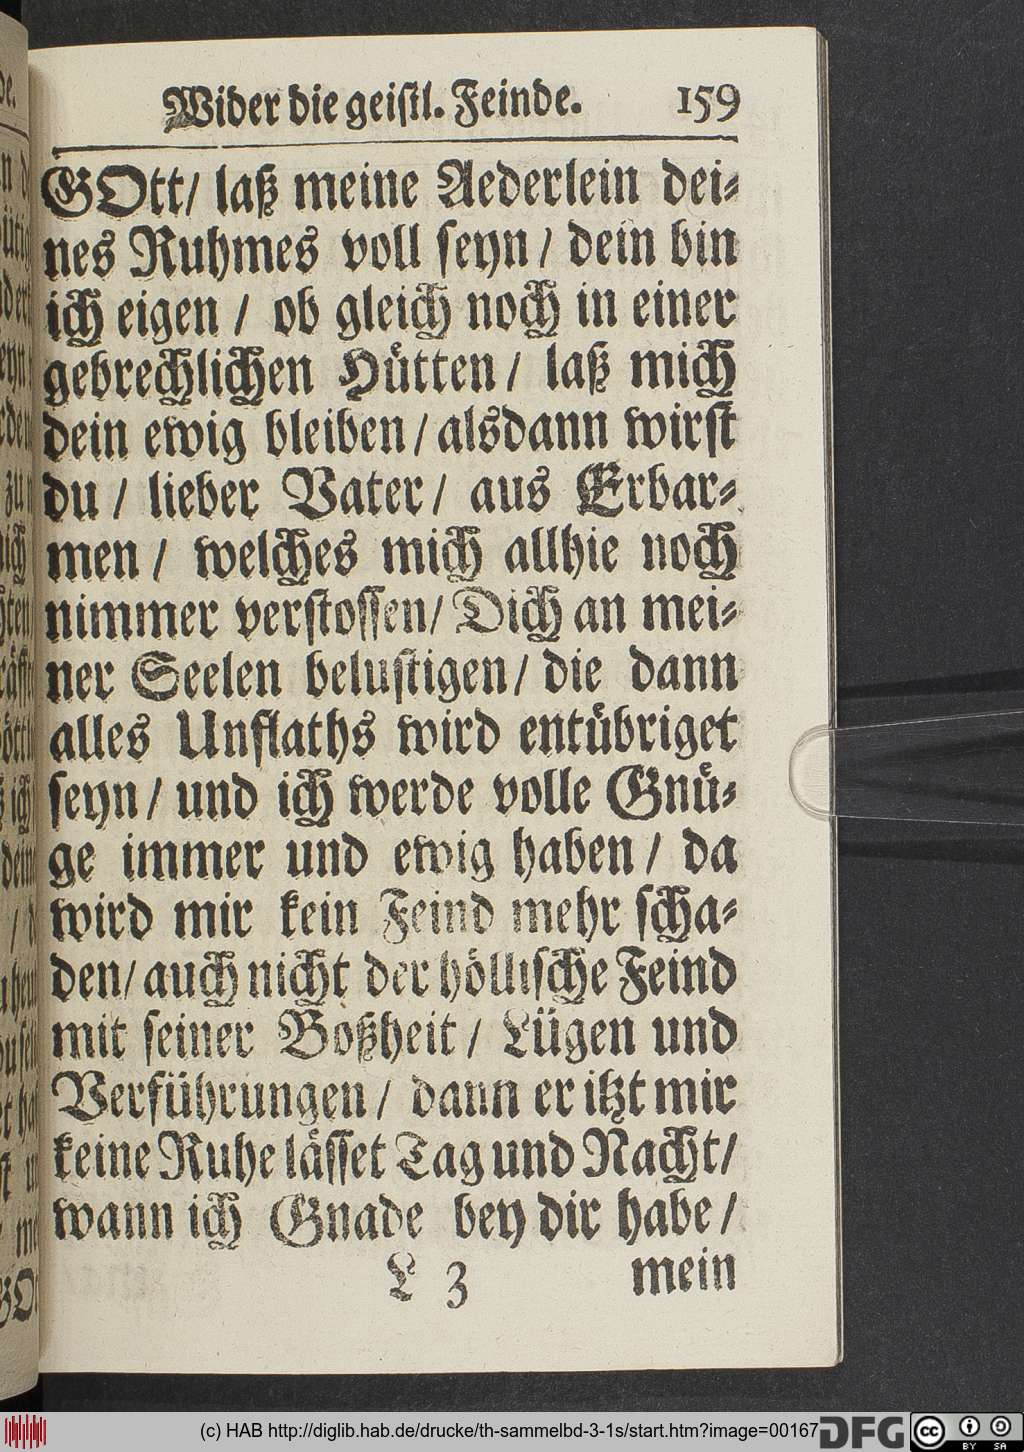 Wider die geistl. Feinde. 159
GOtt/ laß meine Aederlein dei-
nes Ruhmes voll seyn / dein bin
ich eigen / ob gleich noch in einer
gebrechlichen Hütten / laß mich
dein ewig bleiben / alsdann wirst
du / lieber Vater / aus Erbar-
men / welches mich allhie noch
nimmer verstossen/ Dich an mei-
ner Seelen belustigen / die dann
alles Unflaths wird entübriget
seyn / und ich werde volle Gnü-
ge immer und ewig haben / da
wird mir kein Feind mehr scha-
den/ auch nicht der höllische Feind
mit seiner Boßheit / Lügen und
Verführungen / dann er itzt mir
keine Ruhe lässet Tag und Nacht/
wann ich Gnade bey dir habe /
L 3 mein
(c) HAB http://diglib.hab.de/drucke/th-sammelbd-3-1s/start.htm?image=00167
DFG cc BY SA